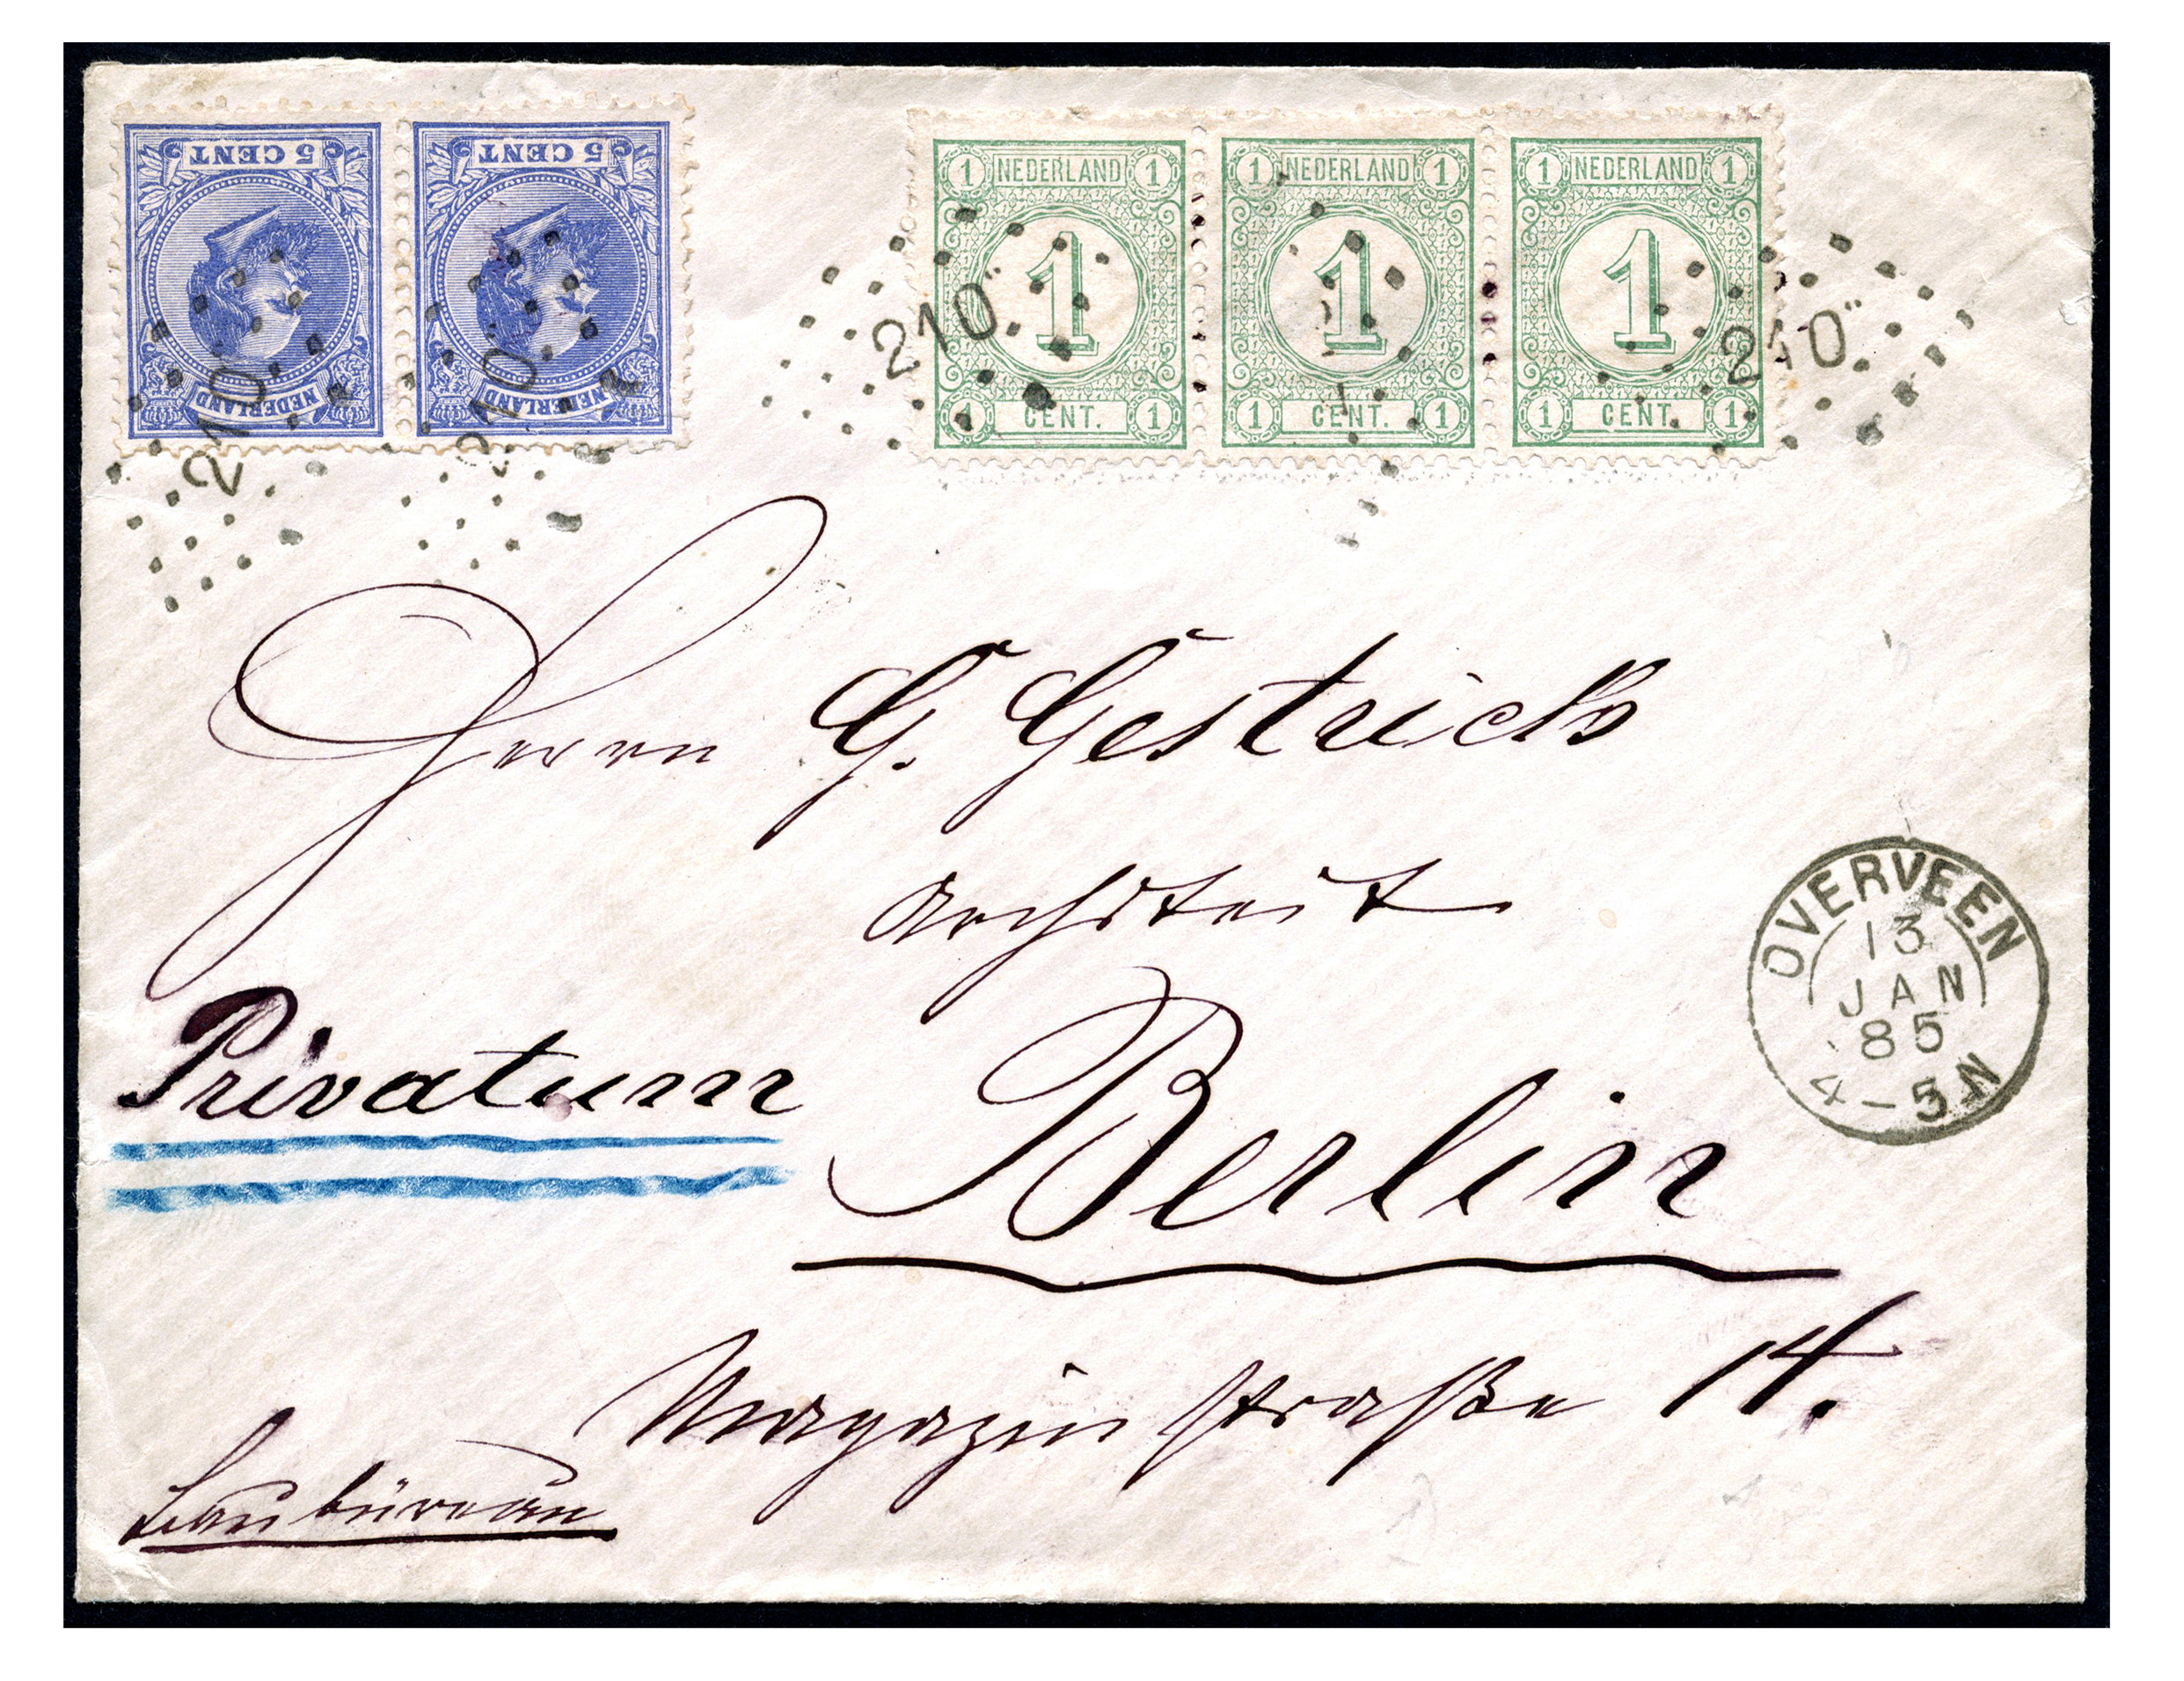 5 CENT 5 CENT
NEDERLAND NEDERLAND
1 NEDERLAND 1 1 NEDERLAND 1 1 NEDERLAND 1
1 1 1
1 CENT. 1 1 CENT. 1 1 CENT. 1
210 210 210 210
Herrn G. Gestrich
Architeit
OVERVEEN
13
JAN
85
4-5N
Privatum
Berlin
Magazin straße 14.
Baubüreau